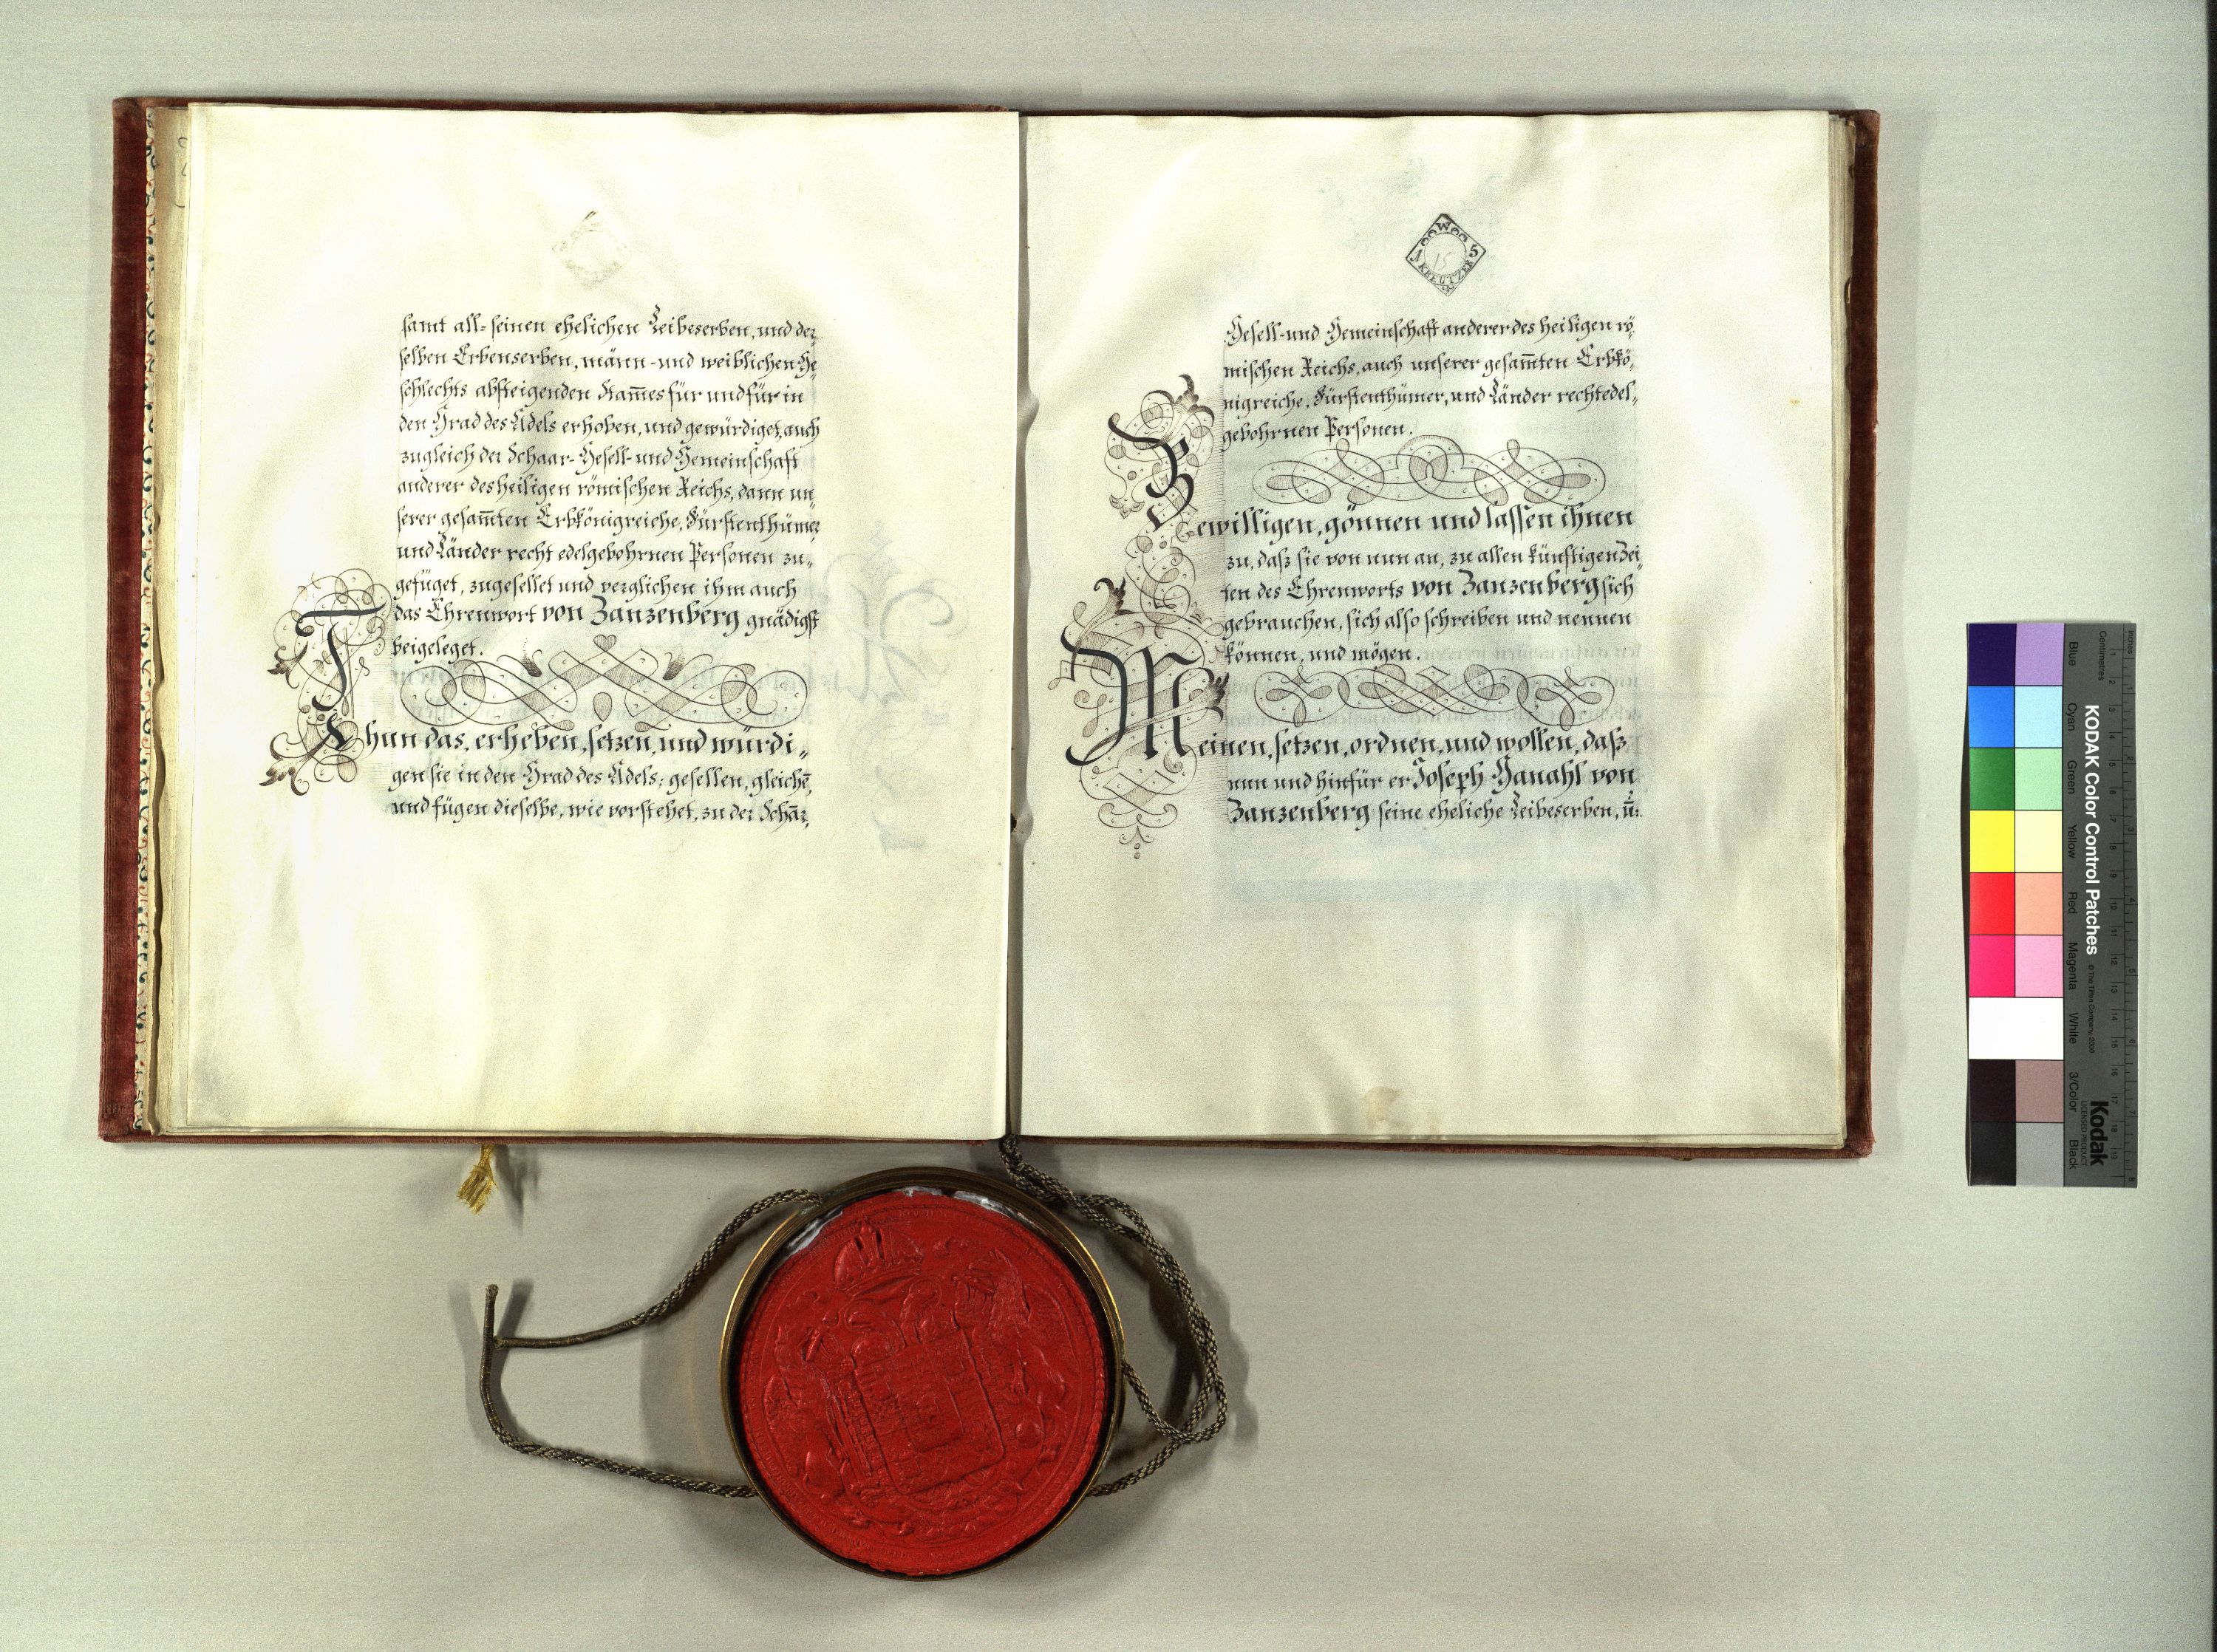 samt all-seinen ehelichen Leibeserben, und der„
selben Erbenserben, männ- und weiblichen Ge„
schlechts absteigenden Stam̄es für und für in
den Grad des Adels erhoben, und gewürdiget, auch
zugleich der Schaar- Gesell- und Gemeinschaft
anderer des heiligen römischen Reichs, dann un„
serer gesam̄ten Erbkönigreiche, Fürstenthümer
und Länder recht edelgebohrnen Personen zu„
gefüget, zugesellet und verglichen ihm auch
das Ehrenwort von Zanzenberg gnädigst
beigeleget.
Thun das, erheben, setzen, und würdi„
gen sie in den Grad des Adels; gesellen, gleichē,
und fügen dieselbe, wie vorstehet, zu der Schaar„
WW
15 KREUTZER
15
Gesell- und Gemeinschaft anderer des heiligen rö„
mischen Reichs, auch unserer gesam̄ten Erbkö„
nigreiche, Fürstenthümer, und Länder rechtedel„
gebohrnen Personen.
Bewilligen, gönnen und lassen ihnen
zu, daß sie von nun an, zu allen künftigen Zei„
ten des Ehrenworts von Zanzenberg sich
gebrauchen, sich also schreiben und nennen
können, und mögen.
Meinen, setzen, ordnen, und wollen, daß
nun und hinfür er Joseph Ganahl von
Zanzenberg seine eheliche Leibeserben, ūn̄:
KODAK Color Control Patches
© The Tiffen Company, 2000
Kodak
LICENSED PRODUCT
Blue
Cyan
Green
Yellow
Red
Magenta
White
3/Color
Black
Centimetres
Inches